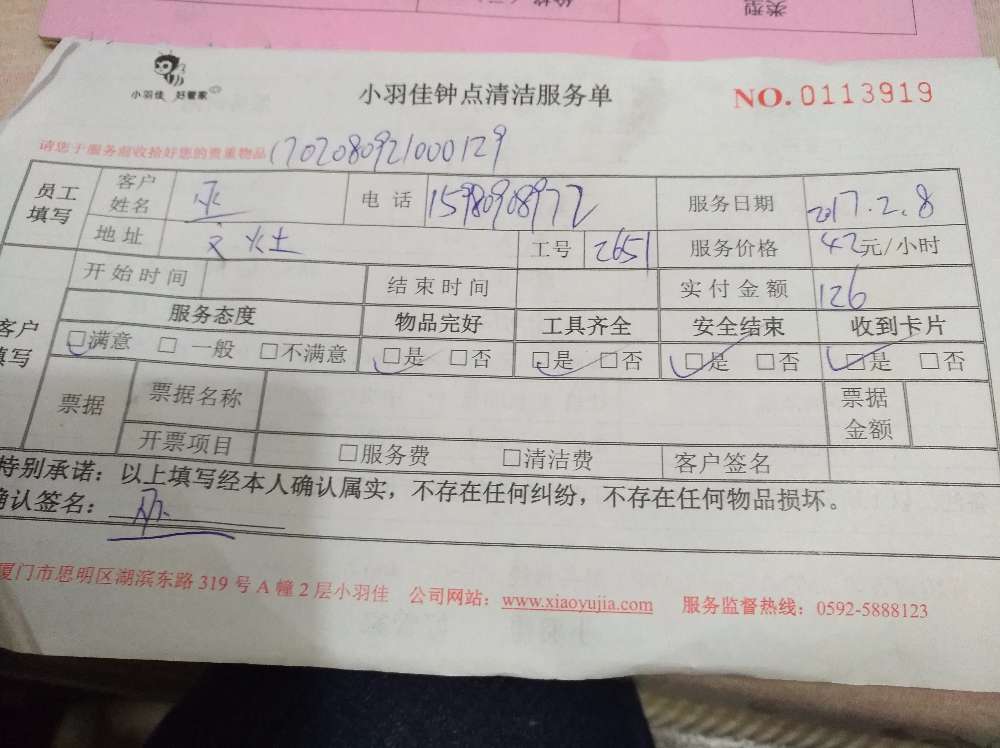 类型
小羽佳 好管家
小羽佳钟点清洁服务单
NO.0113919
请您于服务前收拾好您的贵重物品 1702080921000129
员工填写 客户姓名 电话 服务日期 2017.2.8
地址 工号 2651 服务价格 42元/小时
开始时间 结束时间 实付金额 126
客户填写 服务态度 物品完好 工具齐全 安全结束 收到卡片
□满意 □一般 □不满意 □是 □否 □是 □否 □是 □否 □是 □否
票据 票据名称 票据金额
开票项目 □服务费 □清洁费 客户签名
特别承诺：以上填写经本人确认属实，不存在任何纠纷，不存在任何物品损坏。
确认签名：
厦门市思明区湖滨东路 319 号 A 幢 2 层小羽佳 公司网站：www.xiaoyujia.com 服务监督热线：0592-5888123